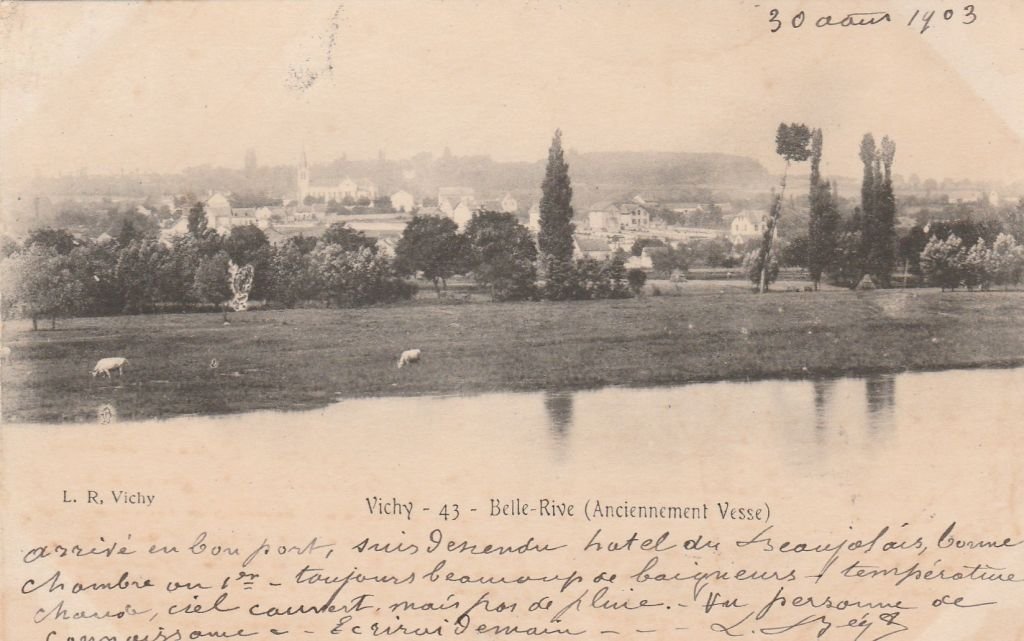 30 août 1903
L. R, Vichy
Vichy - 43 - Belle-Rive (Anciennement Vesse)
arrivé en bon port, suis descendu hotel du Beaujolais, bonne
chambre au 1er - toujours beaucoup de baigneurs - température
chaude, ciel couvert mais pas de pluie. - Vu personne de
connaissance - - Ecrirai demain - - - L.